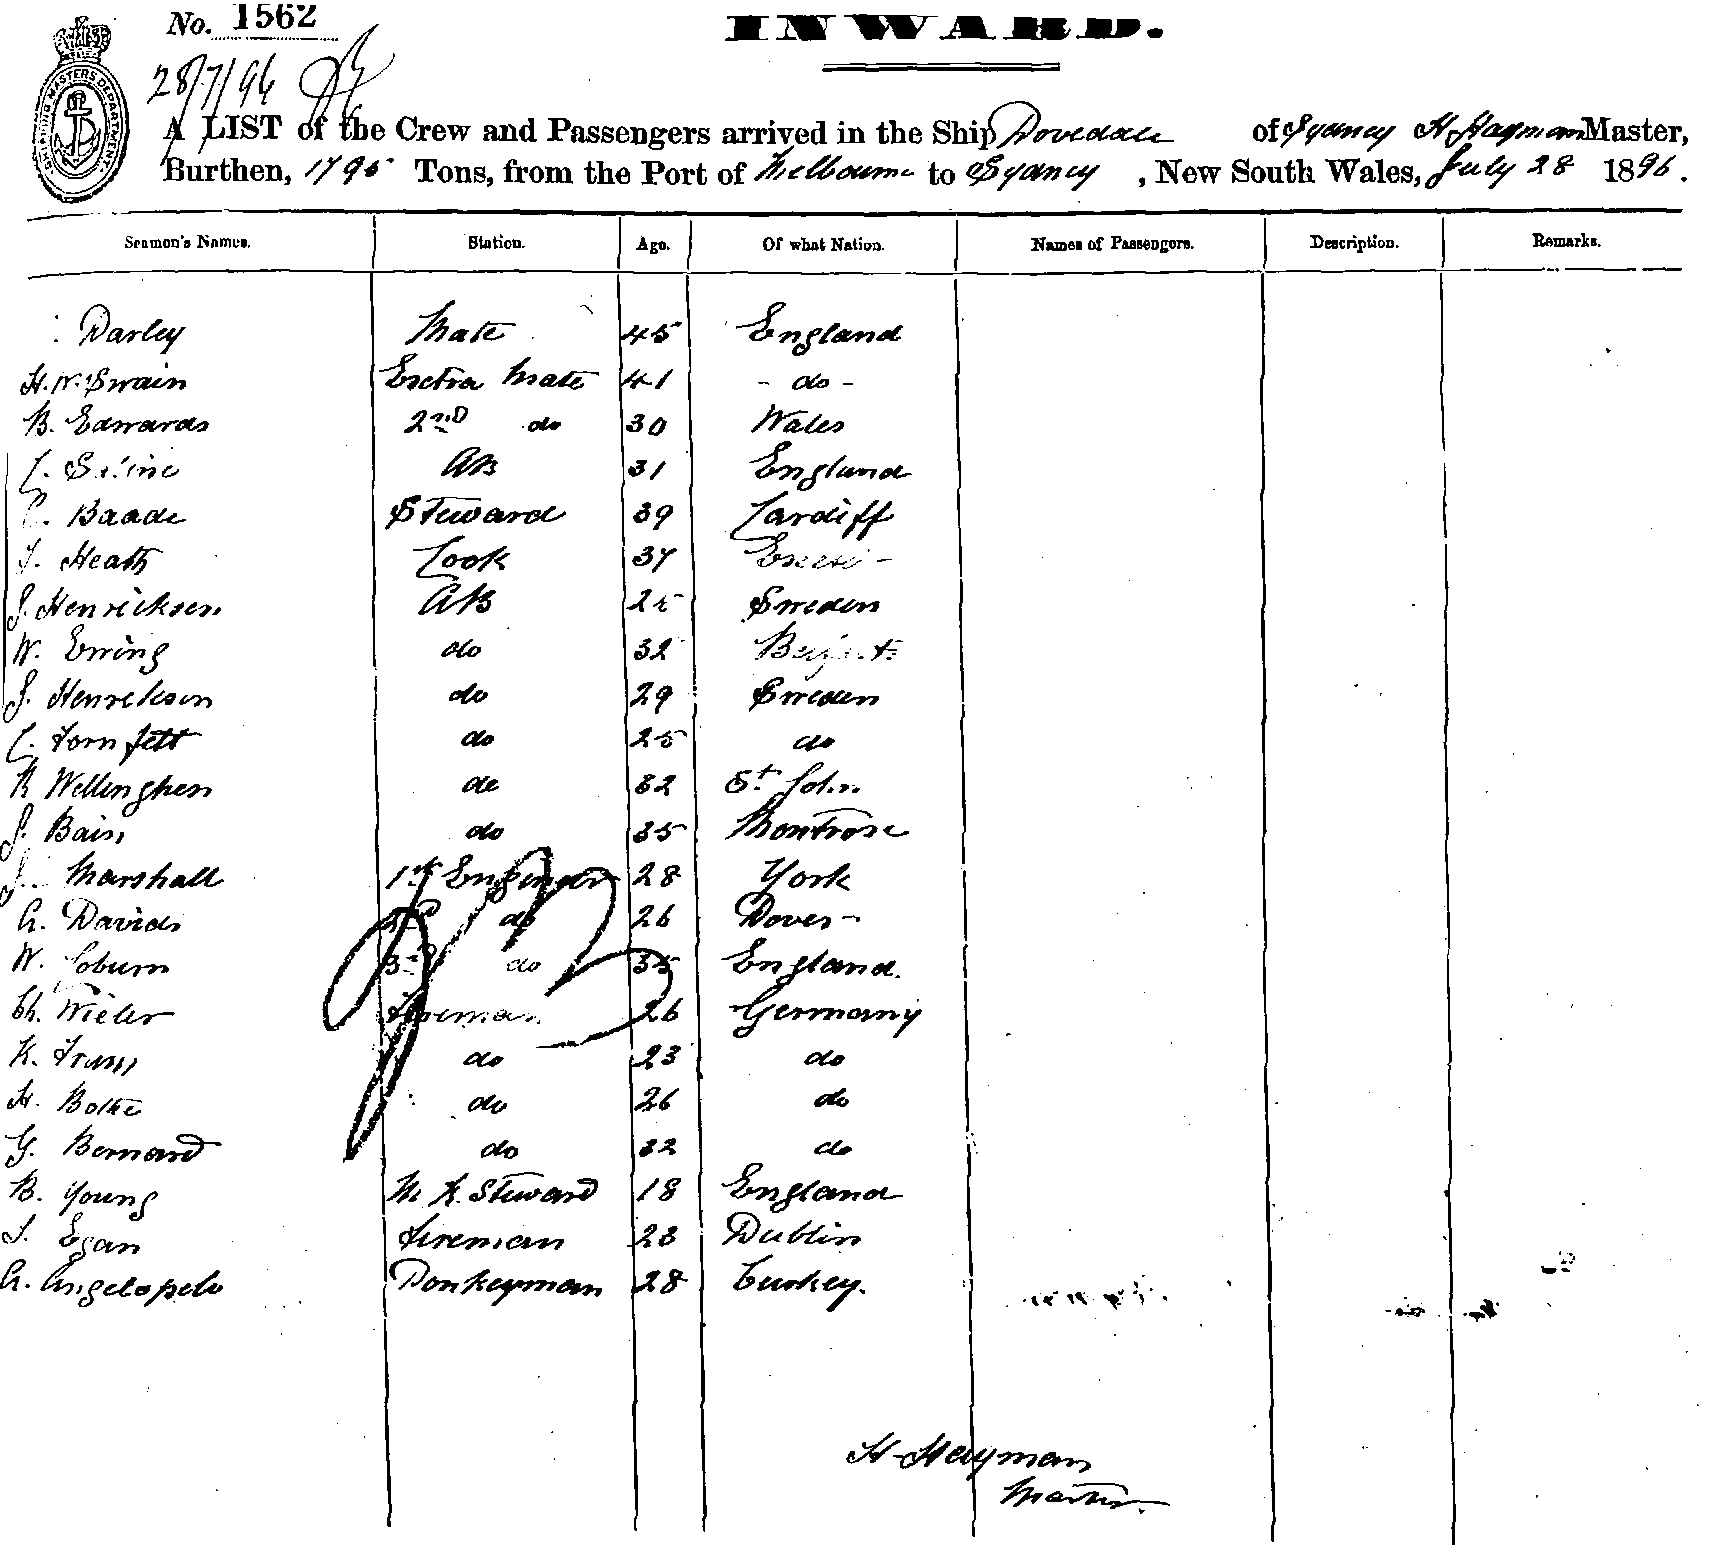 No. 1562
INWARD.
SHIPPING MASTERS DEPARTMENT
28/7/96
A LIST of the Crew and Passengers arrived in the Ship Dovedale of Sydney H Hayman Master,
Burthen, 1795 Tons, from the Port of Melbourne to Sydney, New South Wales, July 28 1896.
Seamen's Names. Station. Age. Of what Nation. Names of Passengers. Description. Remarks.
Darley Mate 45 England
H. W. Swain Extra Mate 41 - do -
B. Edwards 2nd do 30 Wales
C. AB 31 England
C. Baade Steward 39 Cardiff
T. Heath Cook 37
J. Henricksen AB 25 Sweden
W. Ewing do 32
J. Henrickson do 29 Sweden
C. Tornfelt do 25 do
R Wellinghen do 32 St John
J. Bain do 35 Montrose
J. Marshall 1st Engineer 28 York
A. Davids 2nd do 26 Dover
W. Coburn 3rd do 35 England.
Ch. Wieler Fireman 26 Germany
K. Franz do 23 do
H. Bothe do 26 do
G. Bernard do 32 do
B. Young M. R. Steward 18 England
T. Egan Fireman 23 Dublin
A. Angelopelo Donkeyman 28 Turkey.
H Hayman
Master.